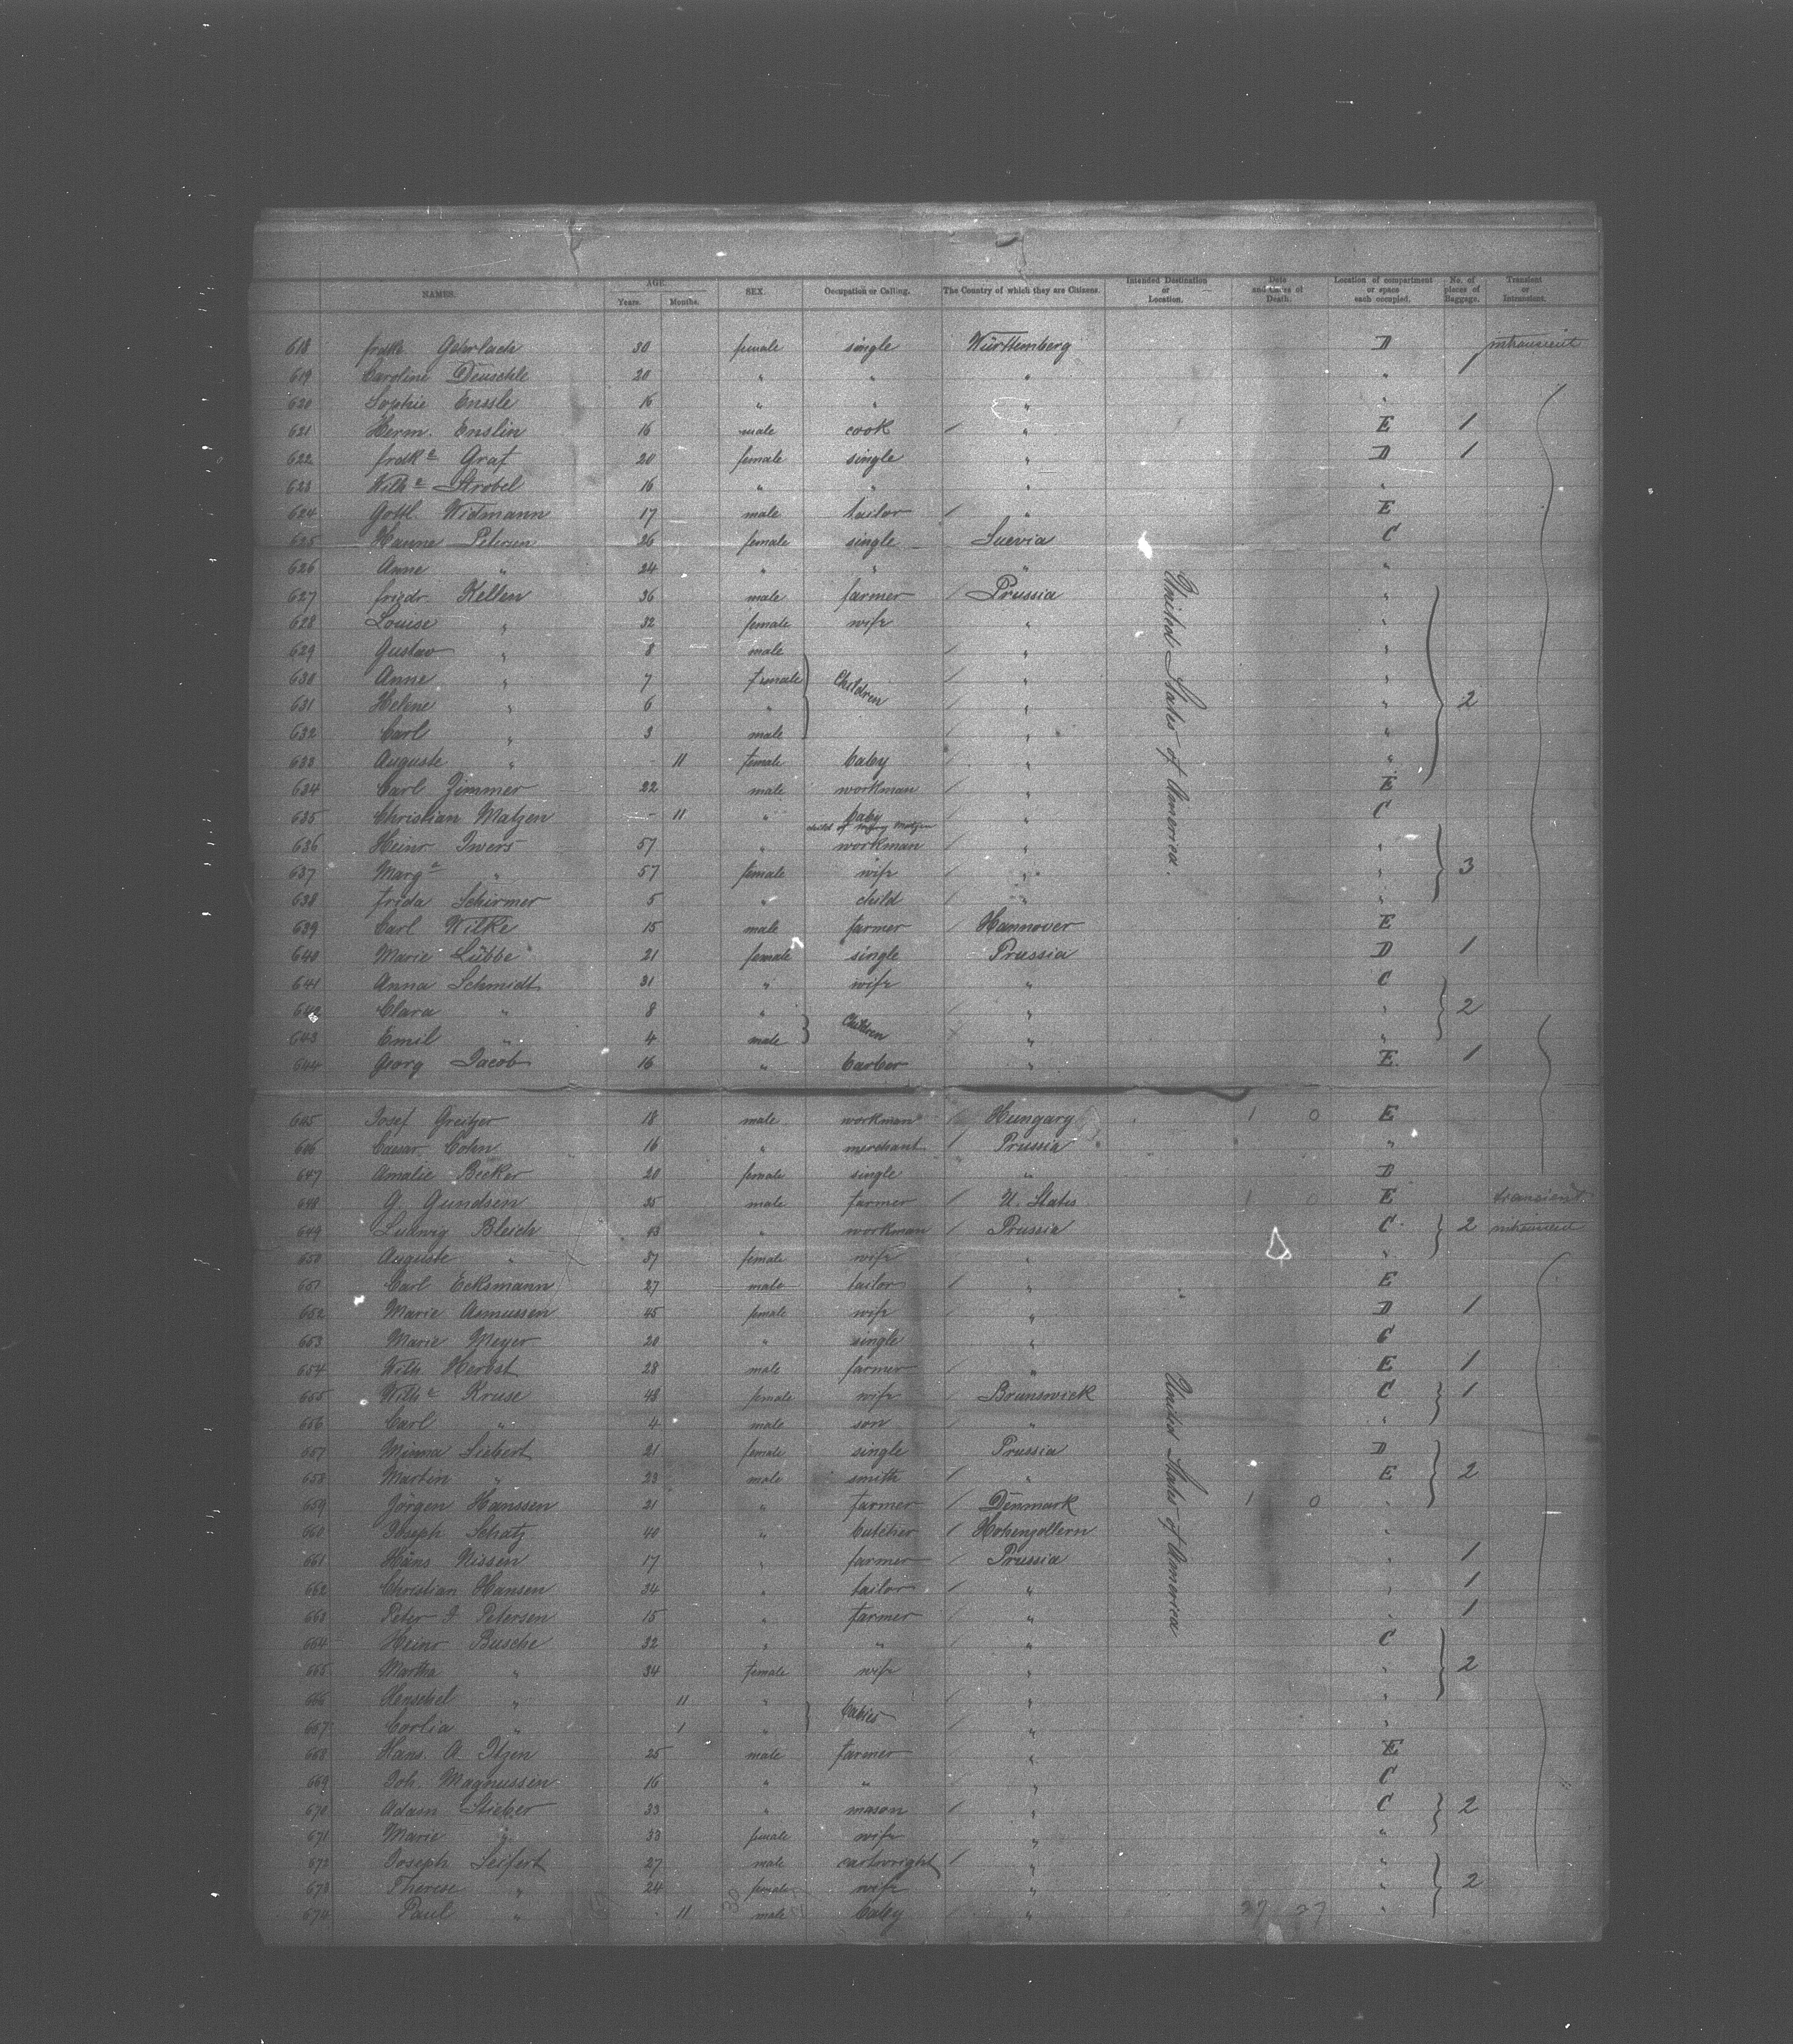 NAMES. AGE. Years. Months. SEX. Occupation or Calling. The Country of which they are Citizens. Intended Destination or Location. Date and Cause of Death. Location of compartment or space each occupied. No. of pieces of Baggage. Transient or Intransient.
618 fredk Gehrlach 30 female single Württemberg D intransient
619 Caroline Deuschle 20 " " " " 1
620 Sophie Enssle 16 " " " "
621 Herm. Enslin 16 male cook / " E 1
622 fredke Graf 20 female single " D 1
623 Wilhe Strobel 16 " " " "
624 Gottl. Widmann 17 male tailor / " E
625 Hanne Petersen 26 female single Suevia C
626 Anne " 24 " " " "
627 friedr. Kellen 36 male farmer / Prussia "
628 Louise " 32 female wife " "
629 Gustav " 8 male / " "
630 Anne " 7 female Children / " "
631 Helene " 6 " / " " 2
632 Carl " 3 male / " "
633 Auguste " - 11 female baby / " "
634 Carl Zimmer 22 male workman / " E
635 Christian Matzen - 11 " baby / " C
child of Mary Matzen
636 Heinr Iwers 57 " workman / " "
637 Marge " 57 female wife / " " 3
638 Frida Schirmer 5 " child / " "
639 Carl Wilke 15 male farmer / Hannover E
640 Marie Lübbe 21 female single Prussia D 1
641 Anna Schmidt 31 " wife " C
642 Clara " 8 " Children / " " 2
643 Emil " 4 male " "
644 Georg Jacob 16 " barber " E 1
United States of America.
645 Josef Greitzer 18 male workman / Hungary 1 0 E
646 Caesar Cohn 16 " merchant / Prussia "
647 Amalie Becker 20 female single " D
648 G. Gundsen 35 male farmer / U. States 1 0 E transient
649 Ludwig Bleich 43 " workman / Prussia C 2 intransient
650 Auguste " 37 female wife " "
651 Carl Ecksmann 27 male tailor / " E
652 Marie Asmussen 45 female wife " D 1
653 Marie Meyer 20 " single " C
654 Wilh Herbst 28 male farmer / " E 1
655 Wilhe Kruse 48 female wife / Brunswick C 1
656 Carl " 4 male son / " "
657 Minna Siebert 21 female single Prussia D
658 Martin " 23 male smith / " E 2
659 Jörgen Hanssen 21 " farmer / Denmark 1 0 "
660 Joseph Schatz 40 " butcher / Hohenzollern "
661 Hans Nissen 17 " farmer / Prussia " 1
662 Christian Hansen 34 " tailor / " " 1
663 Peter J Petersen 15 " farmer / " " 1
664 Heinr Busche 32 " " / " C
665 Martha " 34 female wife " " 2
666 Henschel " 11 " babies / " "
667 Corlia " 1 " / " "
668 Hans A Itzen 25 male farmer " E
669 Joh. Magnussen 16 " " " C
670 Adam Stieber 33 " mason / " C 2
671 Marie " 33 female wife " "
672 Joseph Seifert 27 male cartwright / " "
673 Therese " 24 female wife " " 2
674 Paul " - 11 male baby / " 27 27 "
United States of America